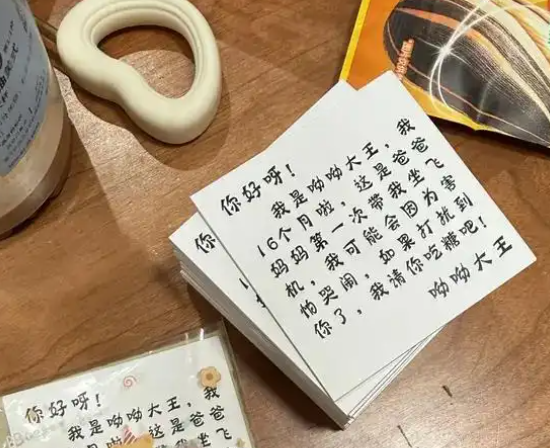 你好呀!
我是呦呦大王,我
16个月啦,这是爸爸
妈妈第一次带我坐飞
机,我可能会因为害
怕哭闹,如果打扰到
你了,我请你吃糖吧!
呦呦大王
你
你好呀!
我是呦呦大王,我